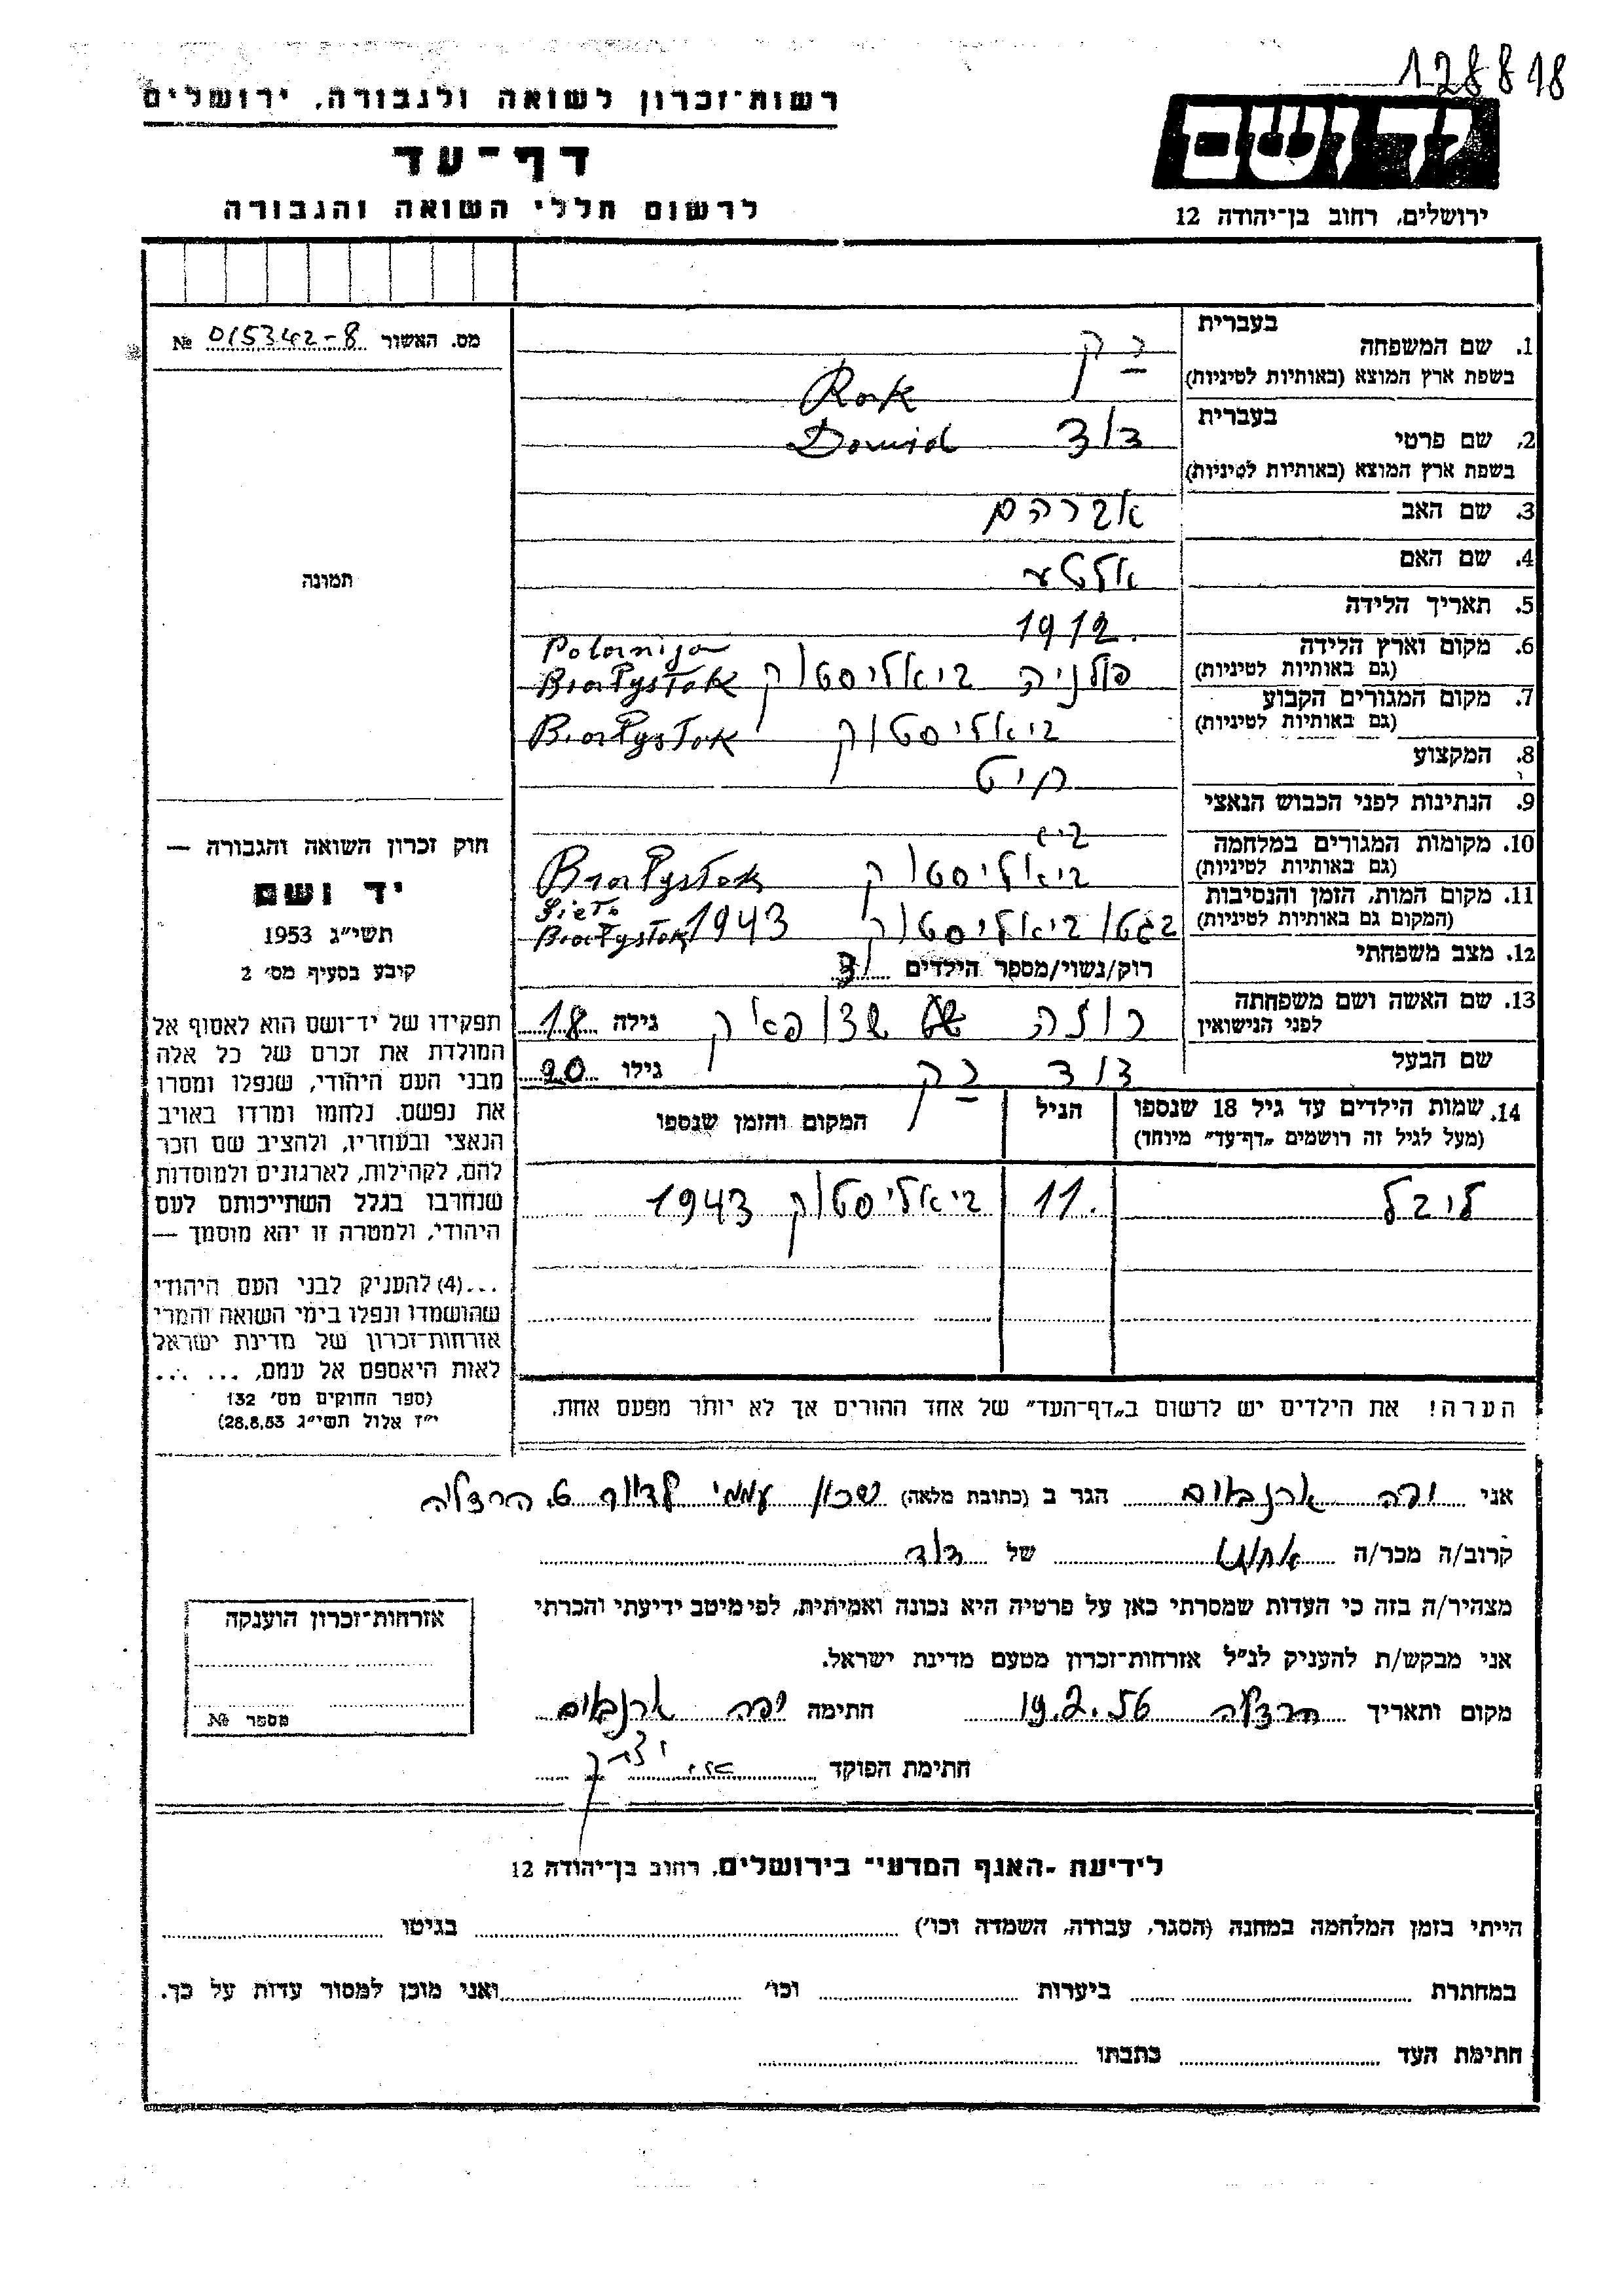 128818
רשות־זכרון לשואה ולגבורה, ירושלים
יד ושם
דף־עד
לרשום חללי השואה והגבורה
ירושלים, רחוב בן־יהודה 12
מס. האשור 015342-8 №
תמונה
חוק זכרון השואה והגבורה —
יד ושם
תשי״ג 1953
קובע בסעיף מס׳ 2
תפקידו של יד־ושם הוא לאסוף אל
המולדת את זכרם של כל אלה
מבני העם היהודי, שנפלו ומסרו
את נפשם, נלחמו ומרדו באויב
הנאצי ובעוזריו, ולהציב שם וזכר
להם, לקהילות, לארגונים ולמוסדות
שנחרבו בגלל השתייכותם לעם
היהודי, ולמטרה זו יהא מוסמך —
...(4) להעניק לבני העם היהודי
שהושמדו ונפלו בימי השואה והמרי
אזרחות־זכרון של מדינת ישראל
לאות היאספם אל עמם, ... ...
(ספר החוקים מס׳ 132
י״ז אלול תשי״ג 28.8.53)
בעברית
1. שם המשפחה
בשפת ארץ המוצא (באותיות לטיניות) Rak
בעברית
2. שם פרטי דוד Dawid
בשפת ארץ המוצא (באותיות לטיניות)
3. שם האב אברהם
4. שם האם אלטע
5. תאריך הלידה 1912.
6. מקום וארץ הלידה Polanija
(גם באותיות לטיניות) פולניה ביאליסטוק Białystok
7. מקום המגורים הקבוע
(גם באותיות לטיניות) ביאליסטוק Białystok
8. המקצוע חיט
9. הנתינות לפני הכבוש הנאצי
10. מקומות המגורים במלחמה
(גם באותיות לטיניות) ביאליסטוק Białystok
11. מקום המות, הזמן והנסיבות
(המקום גם באותיות לטיניות) בגטו ביאליסטוק 1943 Białystok
12. מצב משפחתי
רוק/נשוי/מספר הילדים
13. שם האשה ושם משפחתה
לפני הנישואין גילה 18
שם הבעל דוד גילו 20
14. שמות הילדים עד גיל 18 שנספו הגיל המקום והזמן שנספו
(מעל לגיל זה רושמים „דף־עד״ מיוחד)
ליבל 11. ביאליסטוק 1943
הערה! את הילדים יש לרשום ב„דף־העד״ של אחד ההורים אך לא יותר מפעם אחת.
אני יפה ארנבוים הגר ב (כתובת מלאה) שכון עממי הרצליה
קרוב/ה מכר/ה אחות של דוד
מצהיר/ה בזה כי העדות שמסרתי כאן על פרטיה היא נכונה ואמיתית, לפי מיטב ידיעתי והכרתי
אני מבקש/ת להעניק לנ״ל אזרחות־זכרון מטעם מדינת ישראל.
מקום ותאריך הרצליה 19.2.56 חתימה יפה ארנבוים
חתימת הפוקד
אזרחות־זכרון הוענקה
מספר №
לידיעת ־האגף המדעי־ בירושלים, רחוב בן־יהודה 12
הייתי בזמן המלחמה במחנה (הסגר, עבודה, השמדה וכו׳) בגיטו
במחתרת ביערות וכו׳ ואני מוכן למסור עדות על כך.
חתימת העד כתבתו